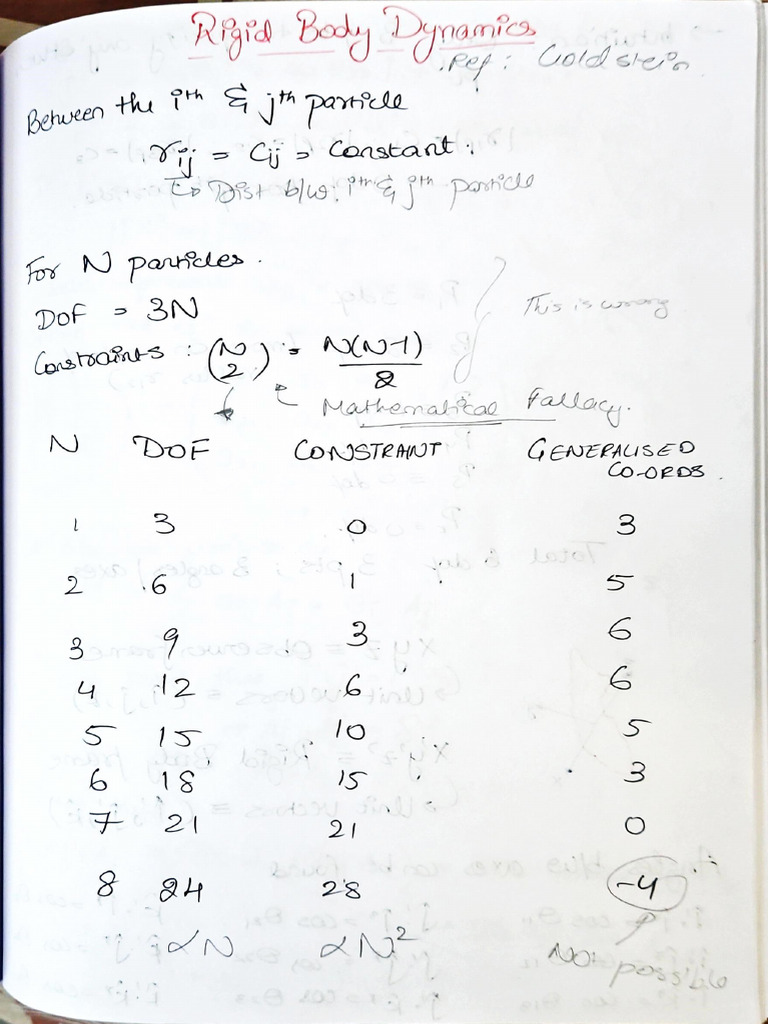 Rigid Body Dynamics
Ref: Goldstein
Between the ith & jth particle
rij = Cij = Constant.
↳ Dist b/w. ith & jth particle
For N particles.
DoF = 3N
This is wrong
Constraints : (N 2) = N(N-1)/2
Mathematical Fallacy.
N DOF CONSTRAINT GENERALISED CO-ORDS.
1 3 0 3
2 6 1 5
3 9 3 6
4 12 6 6
5 15 10 5
6 18 15 3
7 21 21 0
8 24 28 -4
∝N ∝N² Not possible